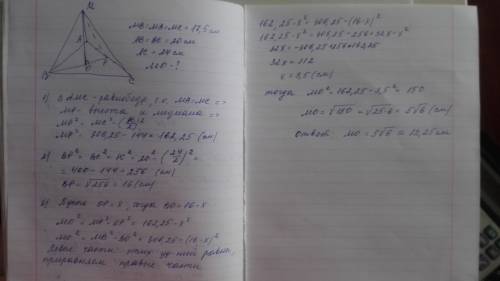 M
A
B
C
P
MA=MB=MC=17,5 см
AB=BC=20 см
AC=24 см
MO-?
1) т.к. MA=MC =>
MP-высота и медиана =>
MP²= 306,25-144=162,25 (см)
2) BP²=BC²-PC²=20²-(24/2)²=
=400-144=256 (см)
BP=√256=16 (см)
3) Пусть OP=x, тогда BO=16-x
MO²=MP²-OP²=162,25-x²
MO²=MB²-BO²=306,25-(16-x)²
Левые части равны,
приравняем правые части
162,25-x²=306,25-(16-x)²
162,25-x²=306,25-256+32x-x²
32x=-306,25+256+162,25
32x=112
x=3,5 (см)
тогда MO²=162,25-3,5²=150
MO=√150=√25·6=5√6 (см)
ответ: MO=5√6≈12,25см